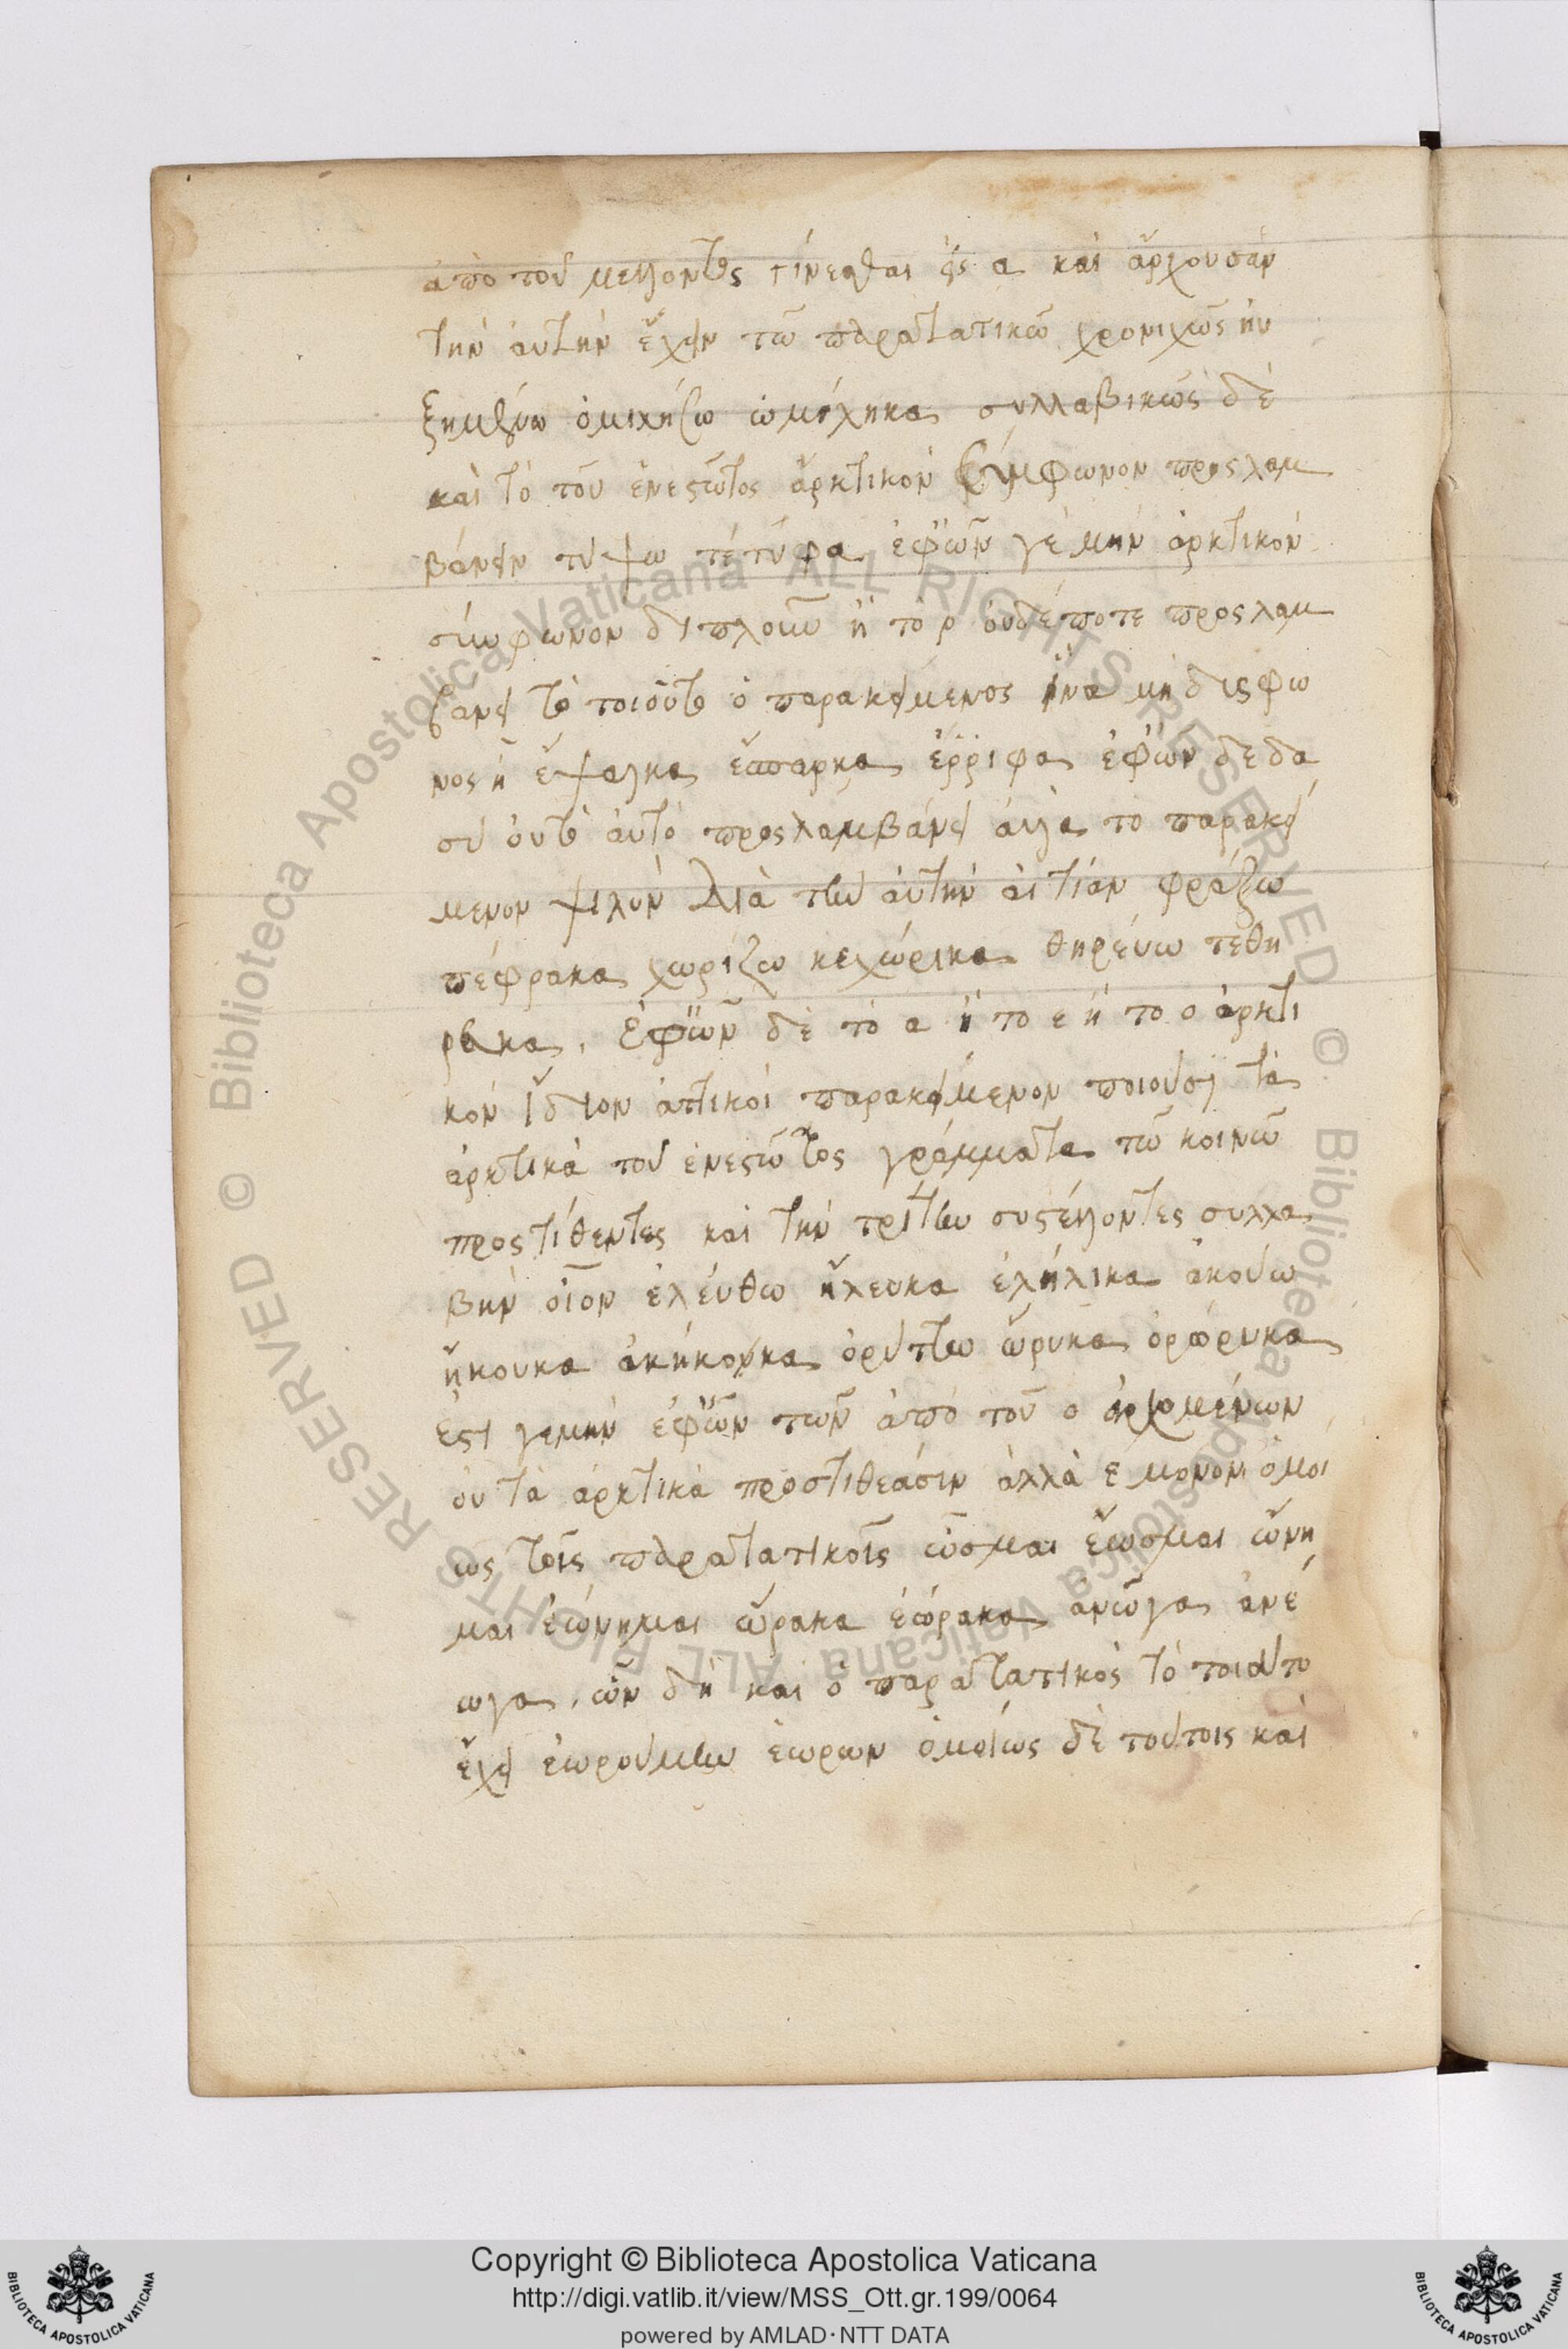 ἀπὸ τοῦ μέλλοντος γίνεσθαι εἰς α καὶ ἄρχουσαν
τὴν αὐτὴν ἔχειν τῶ παρατατικῶ χρονικῶς ηυ
ὁμιλήσω ὡμίληκα συλλαβικῶς δὲ
καὶ τὸ τοῦ ἐνεστῶτος ἀρκτικὸν σύμφωνον προσλαμ
βάνειν τύψω τέτυφα ἐφ' ὧν γὲ μὴν ἀρκτικὸν
σύμφωνον διπλοῦν ἢ τὸ ρ οὐδέποτε προσλαμ
βάνει τὸ τοιοῦτο ὁ παρακείμενος ἵνα μὴ δισφω
νος ἢ ἔψαλκα ἔσπαρκα ἔρριφα ἐφ' ὧν δὲ δα
σὺ οὐκ αὐτὸ προσλαμβάνει ἀλλὰ τὸ παρακεί
μενον ψιλὸν διὰ τὴν αὐτὴν αἰτίαν φράζω
πέφρακα χωρίζω κεχώρικα θηρεύω τεθή
ρευκα. ἐφ' ὧν δὲ τὸ α ἢ το ε ἢ το ο ἀρκτι
κὸν ἴδιον ἀττικοὶ παρακείμενον ποιοῦσι τὰ
ἀρκτικὰ τοῦ ἐνεστῶτος γράμματα τῶ κοινῶ
προστίθεντες καὶ τὴν τρίτην συστέλλοντες συλλα
βὴν οἷον ἐλεύθω ἤλευκα ἐλήλικα ἀκούω
ἤκουκα ἀκήκουκα ὀρύττω ὤρυκα ὀρώρυκα
ἔστι γεμὴν ἐφ' ὧν τῶν ἀπὸ τοῦ ο ἀρχομένων
οὐ τὰ ἀρκτικὰ προστιθέασιν ἀλλὰ ε μόνον ὁμοί
ως τοῖς παρατατικοῖς ὦσμαι ἔωσμαι ὤνη
μαι ἐώνημαι ὥρακα ἑώρακα ἀνῶγα ἀνέ
ωγα. ὧν δὴ καὶ ὁ παρατατικὸς τὸ τοιοῦτο
ἔχει ἐωρούμην ἑώρων ὁμοίως δὲ τούτοις καὶ
Copyright © Biblioteca Apostolica Vaticana
http://digi.vatlib.it/view/MSS_Ott.gr.199/0064
powered by AMLAD·NTT DATA
BIBLIOTECA APOSTOLICA VATICANA
BIBLIOTECA APOSTOLICA VATICANA
© Biblioteca Apostolica Vaticana ALL RIGHTS RESERVED
© Biblioteca Apostolica Vaticana ALL RIGHTS RESERVED